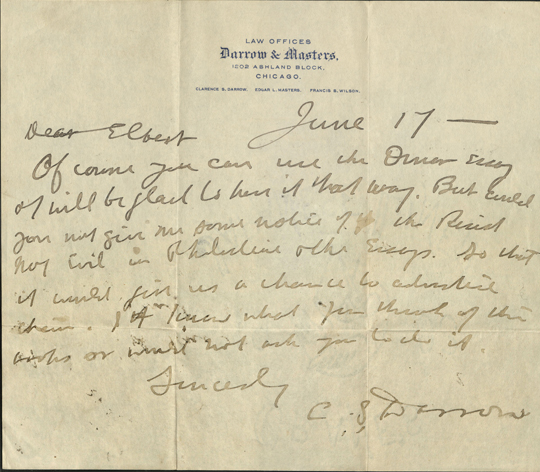 LAW OFFICES
Darrow & Masters,
1202 ASHLAND BLOCK,
CHICAGO.
CLARENCE S. DARROW. EDGAR L. MASTERS. FRANCIS S. WILSON.
June 17 —
Dear Elbert
Of course you can use the Omar Essay
& will be glad to have it that way. But could
you not give me some notice of the Resist
Not Evil in Philistine & the Essays. So that
it would give us a chance to advertise
them. I know what you think of the
books or would not ask you to do it.
Sincerely
C. S. Darrow